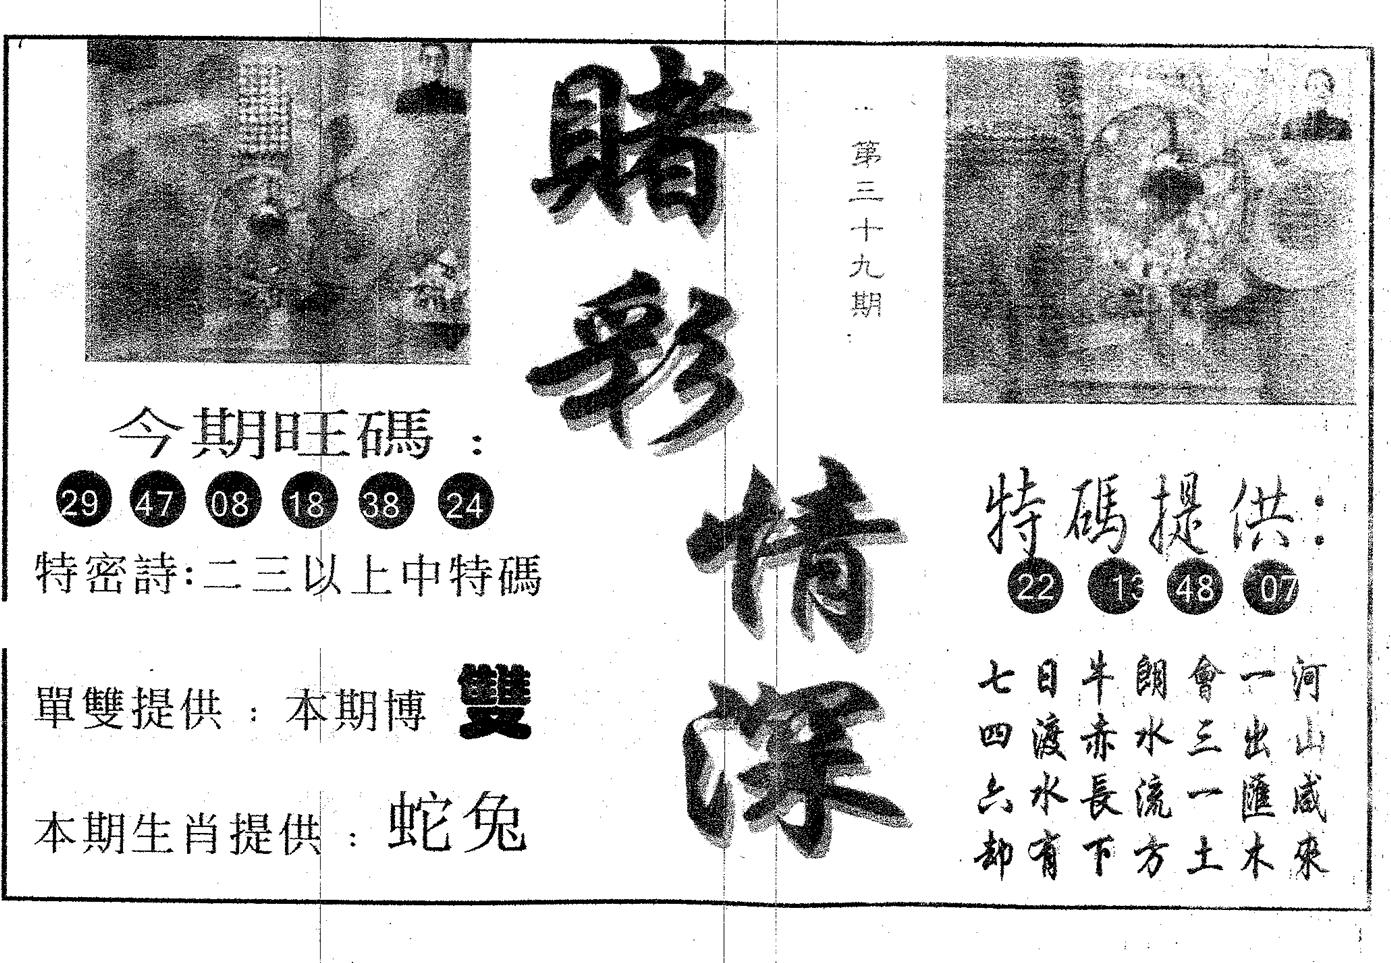 賭彩情深
第三十九期
今期旺碼：
29 47 08 18 38 24
特密詩:二三以上中特碼
單雙提供：本期博 雙
本期生肖提供：蛇兔
特碼提供：
22 13 48 07
七日牛朗會一河
四渡赤水三出山
六水長流一匯咸
却有下方土木來